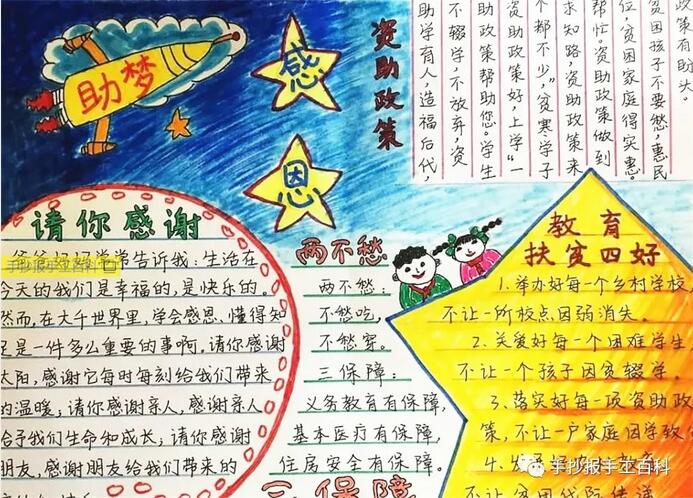 助梦
感
恩
资助政策
助学育人，造福后代，
不辍学，不放弃，资
助政策帮助您。学生
资助政策好，上学“一
个都不少”，贫寒学子
求知路，资助政策来
帮忙；资助政策做到
位，贫困家庭得实惠。
贫困孩子不要愁，惠民
政策有助大。
请你感谢
常告诉我：生活在
今天的我们是幸福的，是快乐的。
然而，在大千世界里，学会感恩、懂得知
足是一件多么重要的事啊。请你感谢
太阳，感谢它每时每刻给我们带来
的温暖；请你感谢亲人，感谢亲人
给予我们生命和成长；请你感谢
朋友，感谢朋友给我们带来的
手抄报手工百科
两不愁
两不愁：
不愁吃，
不愁穿。
三保障：
义务教育有保障，
基本医疗有保障，
住房安全有保障。
三保障
教育
扶贫四好
1.举办好每一个乡村学校，
不让一所校点因弱消失。
2.关爱好每一个困难学生，
不让一个孩子因贫辍学。
3.落实好每一项资助政
策，不让一户家庭因学致
4.
手抄报手工百科